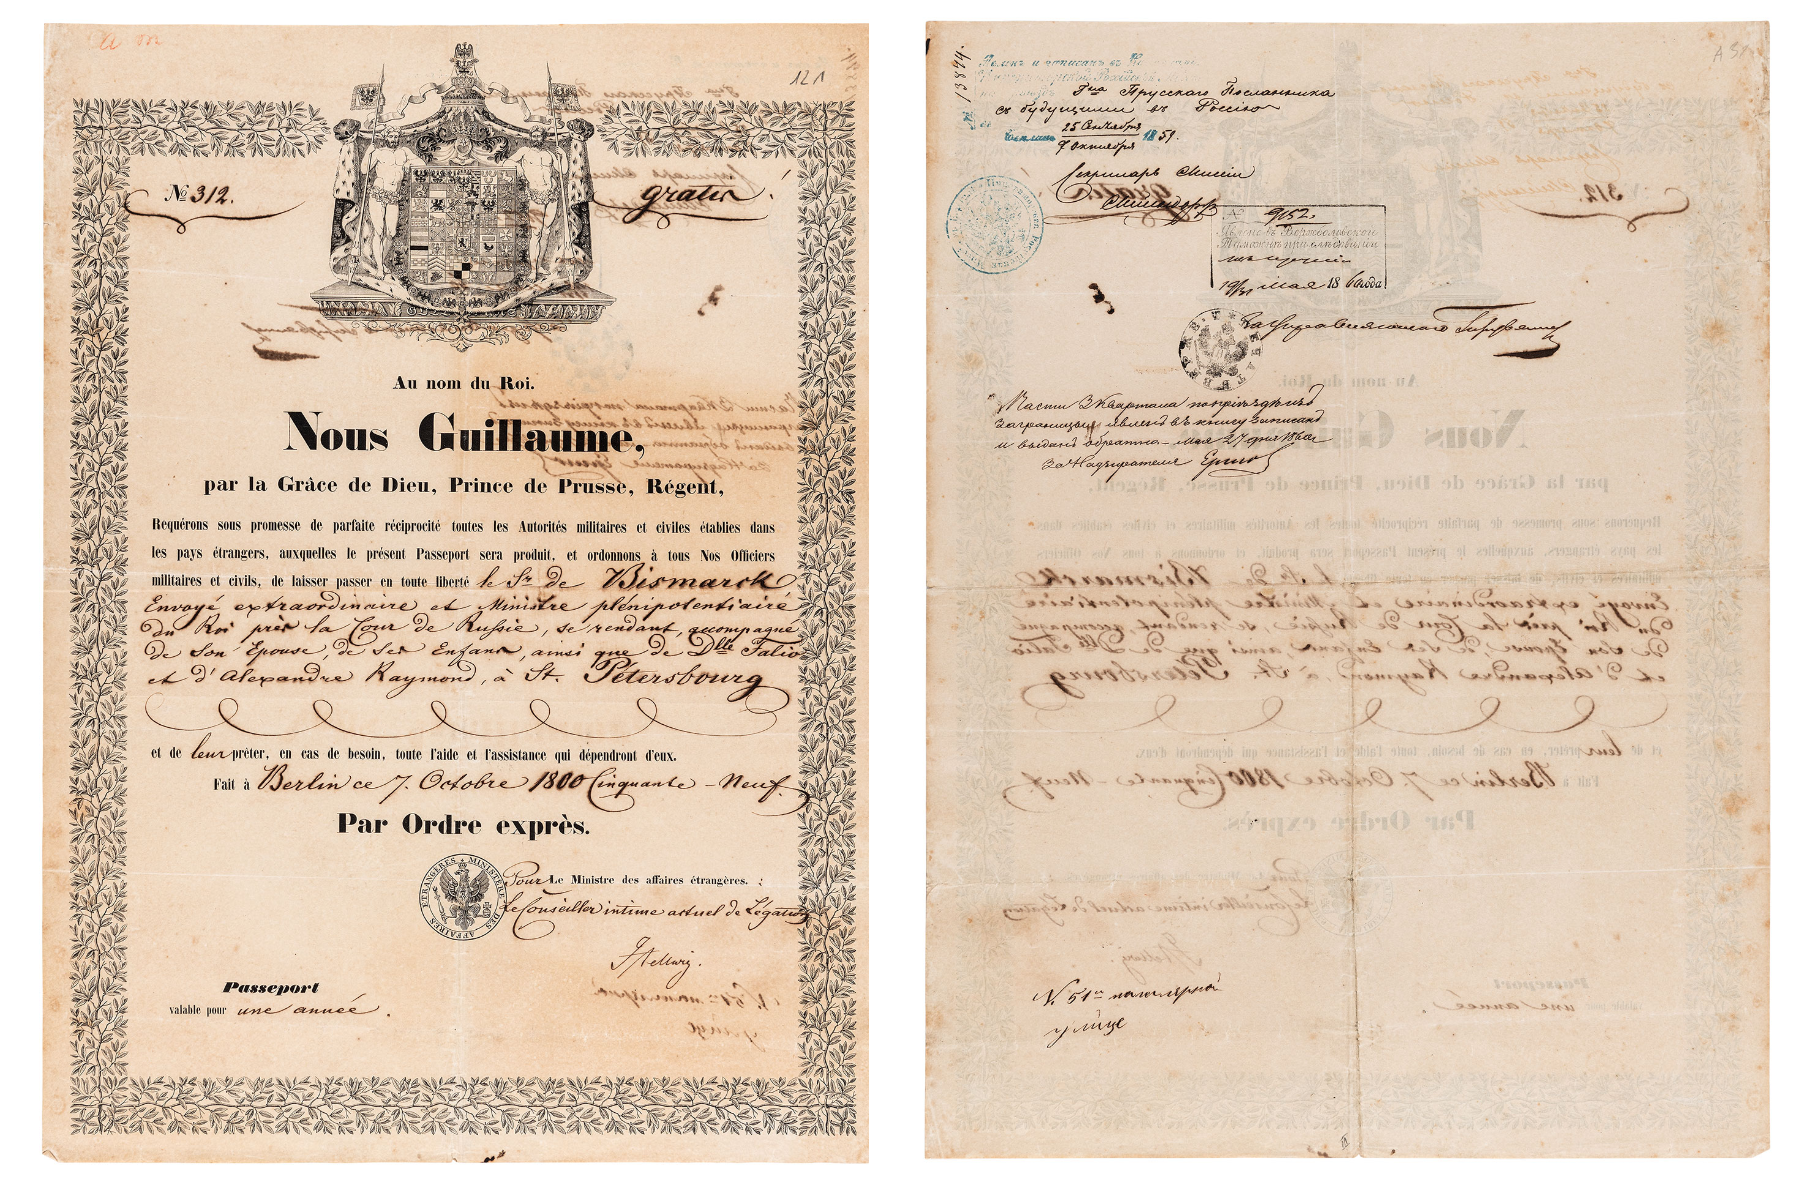 121
№ 312.
gratis
Au nom du Roi.
Nous Guillaume,
par la Grâce de Dieu, Prince de Prusse, Régent,
Requérons sous promesse de parfaite réciprocité toutes les Autorités militaires et civiles établies dans
les pays étrangers, auxquelles le présent Passeport sera produit, et ordonnons à tous Nos Officiers
militaires et civils, de laisser passer en toute liberté le Sr. de Bismarck
Envoyé extraordinaire et Ministre plénipotentiaire
du Roi près la Cour de Russie, se rendant, accompagné
de Son Epouse, de Ses Enfans, ainsi que de Dlle Falio
et d'Alexandre Raymond, à St. Pétersbourg
et de leur prêter, en cas de besoin, toute l'aide et l'assistance qui dépendront d'eux.
Fait à Berlin ce 7. Octobre 1800 Cinquante-Neuf.
Par Ordre exprès.
MINISTÈRE DES AFFAIRES ETRANGÈRES
Pour Le Ministre des affaires étrangères. :
Le Conseiller intime actuel de Légation
Hellwig.
Passeport
valable pour une année.
13894.
Явленъ и записанъ въ
Россійс
Гна Прусскаго Посланника
съ будущими въ Россію
25 Сентября
7 Октября
1859.
Секретарь Миссіи
№ 9152.
Явленъ въ Вержболовской
Таможнѣ при слѣдованіи
19/31 Мая 1860 года
Части 3 Квартала по пріѣздѣ изъ
заграницы явленъ въ книгу записанъ
и выданъ обратно Мая 27 дня 1860 г
За Надзирателя
№ 51й
улице